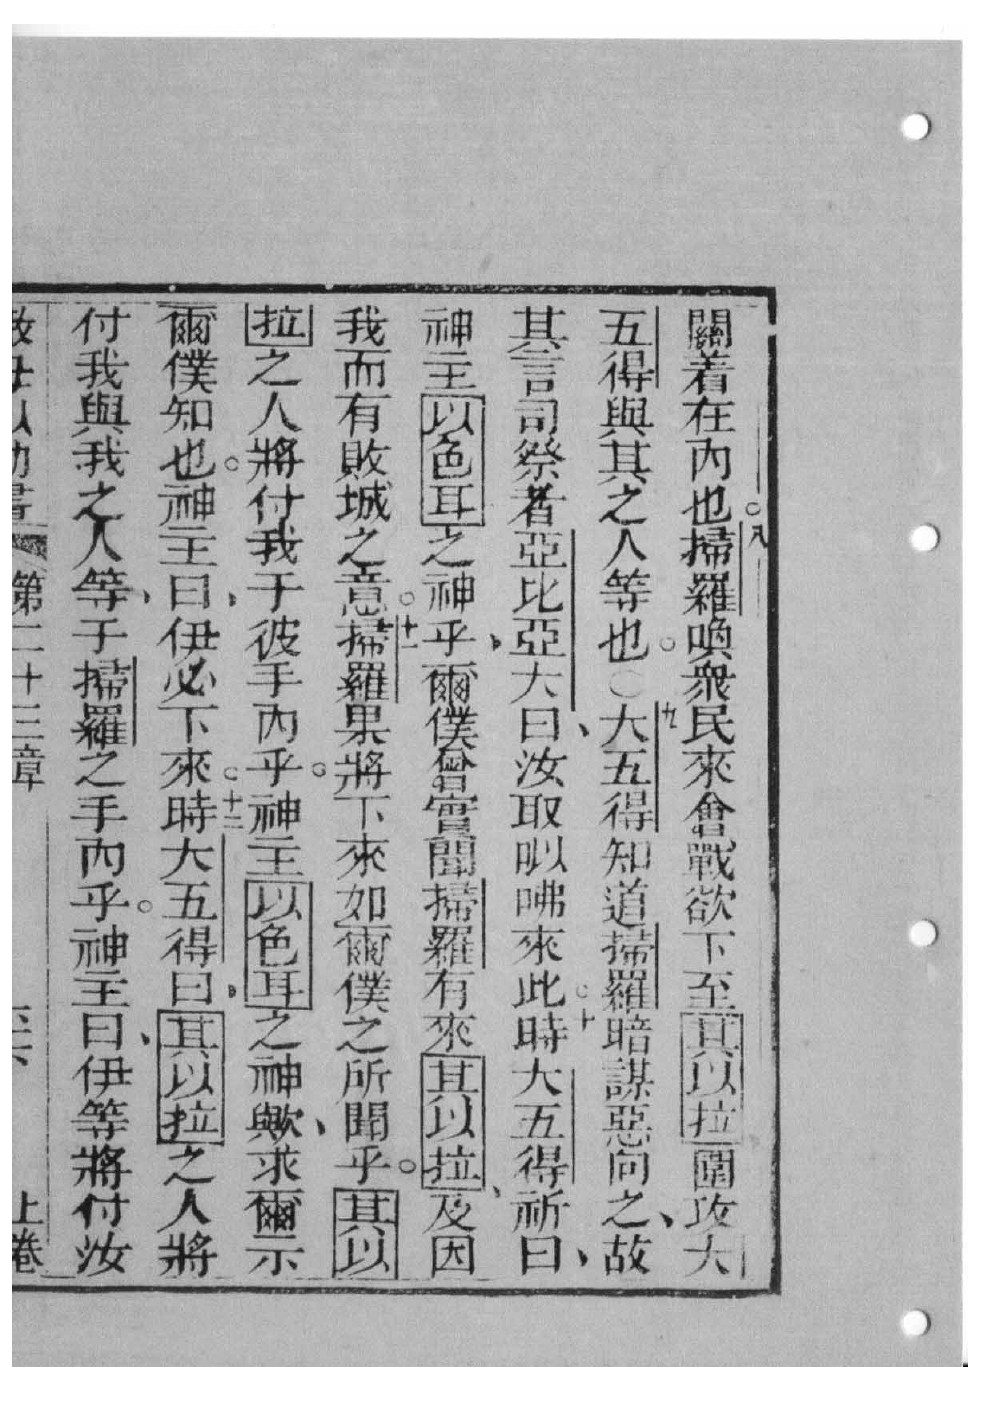 關着在內也。八掃羅喚衆民來會戰欲下至其以拉圍攻大
五得與其之人等也。○九大五得知道掃羅暗謀惡向之、故
其言司祭者亞比亞大曰、汝取㕥咈來此。十時大五得祈曰、
神主以色耳之神乎、爾僕曾實聞掃羅有來其以拉、及因
我而有敗城之意。十一掃羅果將下來如爾僕之所聞乎。其以
拉之人將付我于彼手內乎。神主以色耳之神歟、求爾示
爾僕知也。神主曰、伊必下來。十二時大五得曰、其以拉之人將
付我與我之人等、于掃羅之手內乎。神主曰、伊等將付汝
第二十三章 上卷